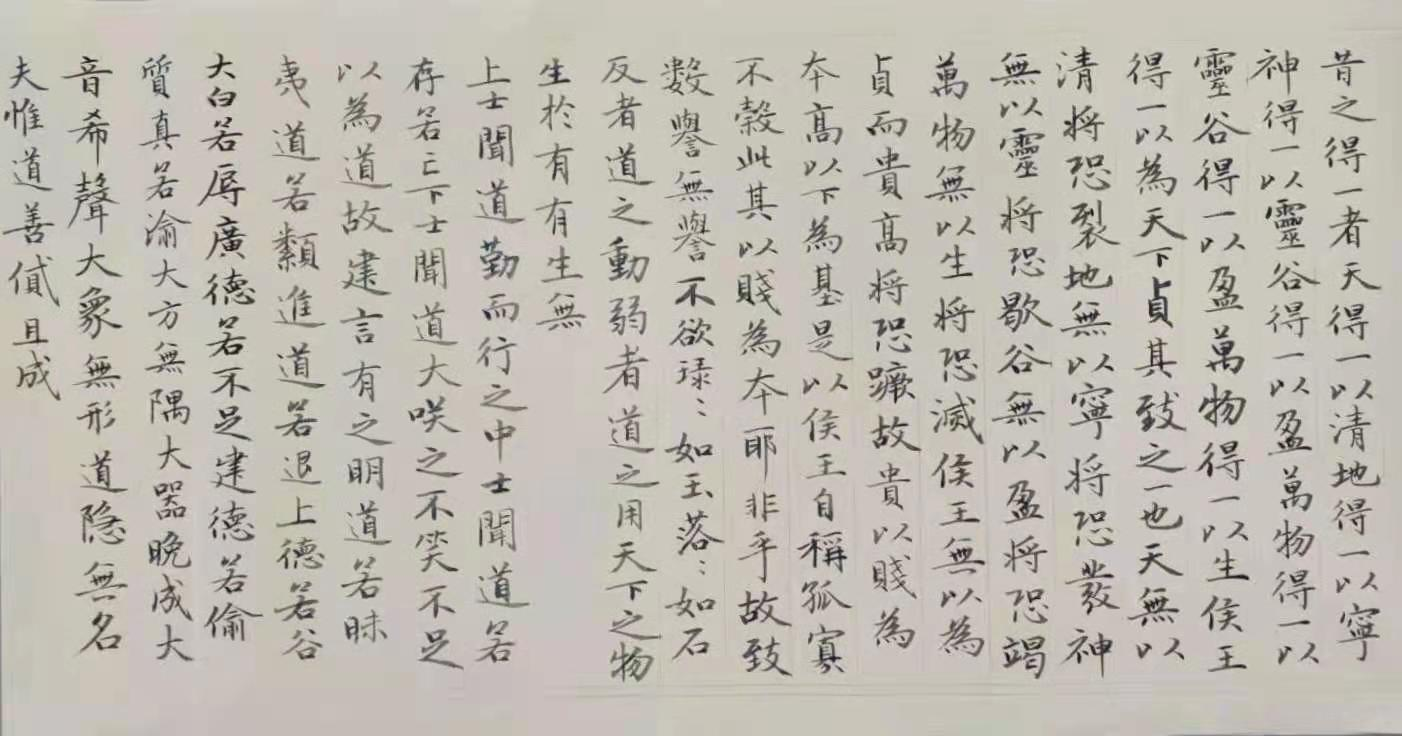 昔之得一者天得一以清地得一以寧
神得一以靈谷得一以盈萬物得一以
靈谷得一以盈萬物得一以生侯王
得一以為天下貞其致之一也天無以
清將恐裂地無以寧將恐發神
無以靈將恐歇谷無以盈將恐竭
萬物無以生將恐滅侯王無以為
貞而貴高將恐蹶故貴以賤為
本高以下為基是以侯王自稱孤寡
不榖此其以賤為本耶非乎故致
数譽無譽不欲琭〻如玉落〻如石
反者道之動弱者道之用天下之物
生於有有生無
上士聞道勤而行之中士聞道若
存若亡下士聞道大咲之不笑不足
以為道故建言有之明道若昧
夷道若纇進道若退上德若谷
大白若辱廣德若不足建德若偷
質真若渝大方無隅大器晚成大
音希聲大象無形道隐無名
夫惟道善貸且成